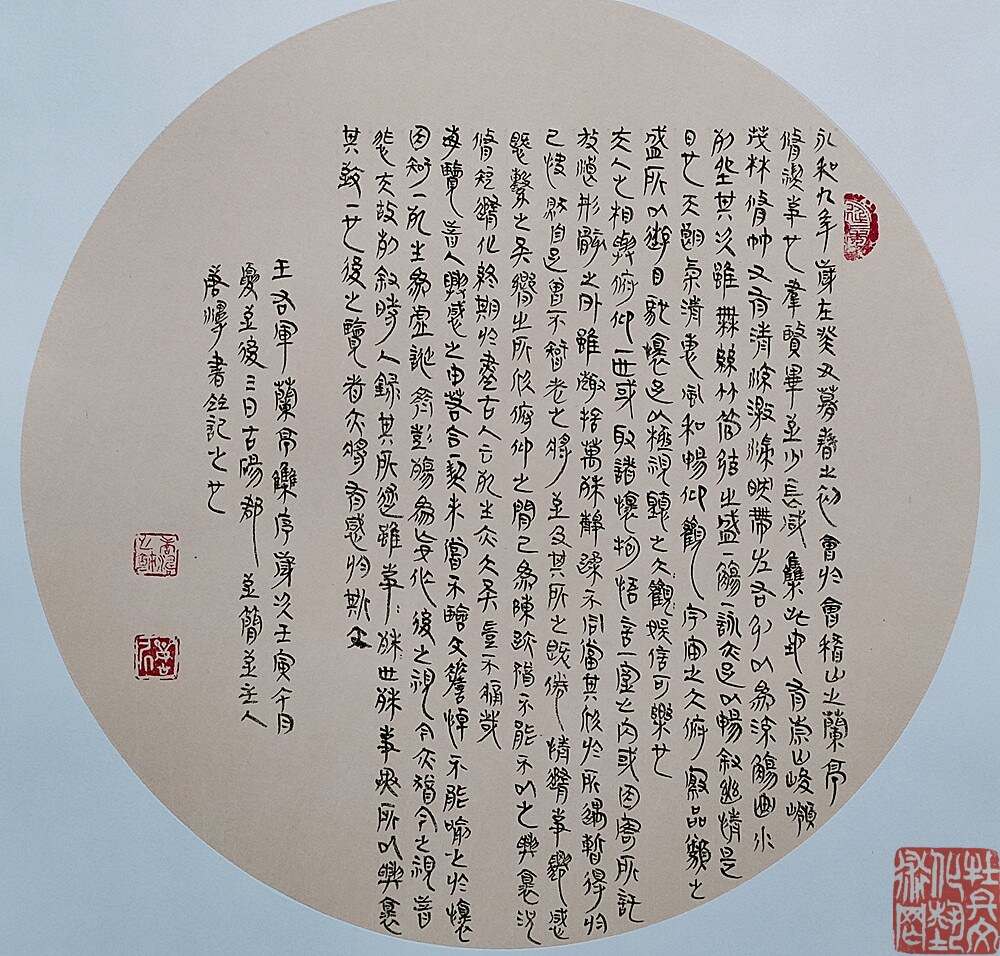 永和九年歲在癸丑暮春之初會於會稽山之蘭亭
脩禊事也羣賢畢至少長咸集此地有崇山峻嶺
茂林脩竹又有清流激湍映帶左右引以為流觴曲水
列坐其次雖無絲竹管弦之盛一觴一詠亦足以暢敘幽情是
日也天朗氣清惠風和暢仰觀宇宙之大俯察品類之
盛所以遊目騁懷足以極視聽之大觀娛信可樂也
夫人之相與俯仰一世或取諸懷抱悟言一室之內或因寄所託
放浪形骸之外雖趣捨萬殊靜躁不同當其欣於所遇暫得於
己快然自足曾不知老之將至及其所之既倦情隨事遷感
慨繫之矣嚮之所欣俯仰之閒已為陳跡猶不能不以之興懷況
脩短隨化終期於盡古人云死生亦大矣豈不痛哉
每覽昔人興感之由若合一契未嘗不臨文嗟悼不能喻之於懷
固知一死生為虛誕齊彭殤為妄作後之視今亦猶今之視昔
悲夫故列敘時人錄其所述雖世殊事異所以興懷
其致一也後之覽者亦將有感於斯文
王右軍蘭亭集序歲次壬寅午月
夏至後三日古陽郡至簡至主人
書並記之也